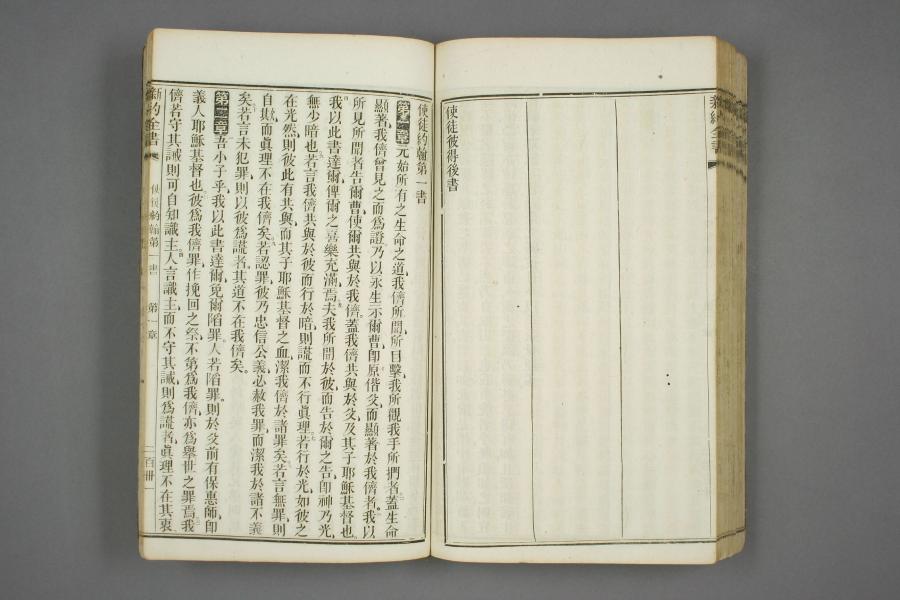 新約全書
使徒彼得後書
使徒約翰第一書
第一章 元始所有之生命之道、我儕所聞、所目擊、我所觀、我手所捫者、蓋生命
顯著、我儕曾見之而爲證、乃以永生示爾曹、卽原偕父而顯著於我儕者、我以
所見所聞者告爾曹、使爾共與於我儕、蓋我儕共與於父、及其子耶穌基督也、
我以此書達爾、俾爾之喜樂充滿焉、夫我所聞於彼、而告於爾之告、卽神乃光、
無少暗也、若言我儕共與於彼、而行於暗、則謊而不行眞理、若行於光、如彼之
在光然、則彼此有共與、而其子耶穌基督之血、潔我儕於諸罪矣、若言無罪、則
自欺、而眞理不在我儕矣、若認罪、彼乃忠信公義、必赦我罪、而潔我於諸不義
矣、若言未犯罪、則以彼爲謊者、其道不在我儕矣。
第二章 吾小子乎、我以此書達爾、免爾陷罪、人若陷罪、則於父前有保惠師、卽
義人耶穌基督也、彼爲我儕罪作挽回之祭、不第爲我儕、亦爲舉世之罪焉、我
儕若守其誡、則可自知識主、人言識主、而不守其誡、則爲謊者、眞理不在其衷
新約全書 使徒約翰第一書 第一章 二百卌一